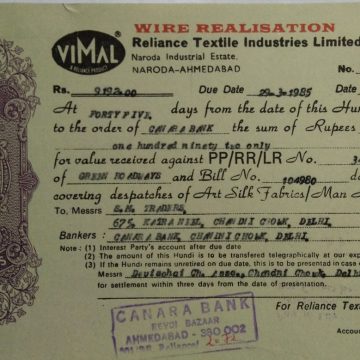 WIRE REALISATION
VIMAL
A RELIANCE PRODUCT
Reliance Textile Industries Limited
Naroda Industrial Estate,
NARODA-AHMEDABAD
No.
Rs. 9192=00 Due Date 29-3-1985 Date
At FORTYFIVE days from the date of this Hun
to the order of CANARA BANK the sum of Rupees
one hundred ninety two only
for value received against PP/RR/LR No. 3
of GREEN ROADWAYS and Bill No. 104980
covering despatches of Art Silk Fabrics/Man
To Messrs TRADERS,
675, KATRA NIEL, CHANDNI CHOWK, DELHI
Bankers : CANARA BANK, CHANDNI CHOWK, DELHI.
Note : (1) Interest Party's account after due date
(2) The amount of this Hundi is to be transferred telegraphically at our exp
(3) If the Hundi remains unretired on due date, this is to be presented in case
Messrs Chandni Chowk, Delh
for settlement within three days from the date of presentation.
For Reliance Text
CANARA BANK
REVDI BAZAAR
AHMEDABAD - 380 002